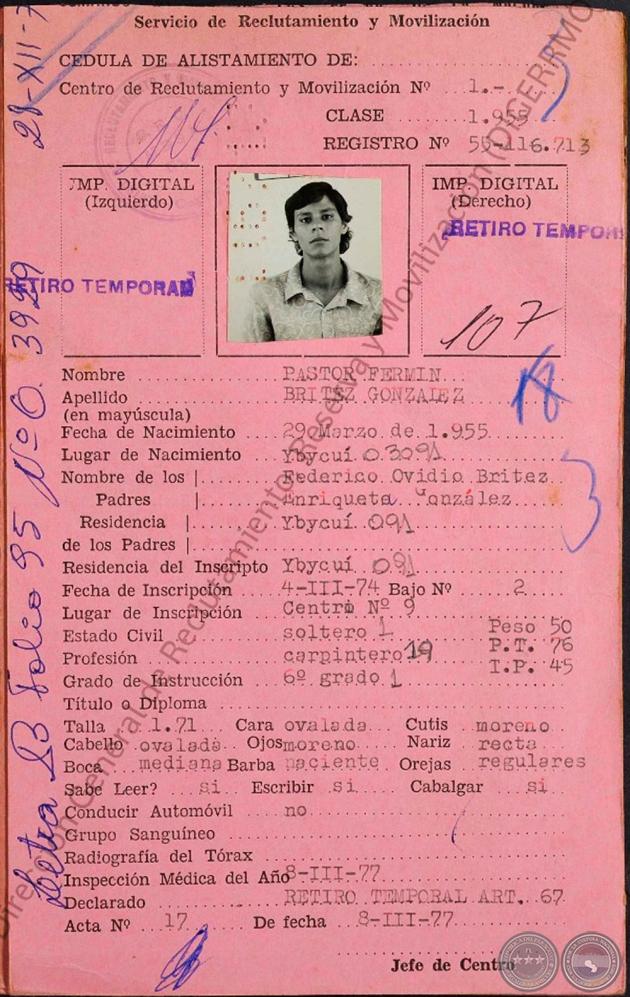 Servicio de Reclutamiento y Movilización
CEDULA DE ALISTAMIENTO DE:
Centro de Reclutamiento y Movilización Nº 1.-
CLASE 1.955
REGISTRO Nº 55-116.713
28-XII-7
IMP. DIGITAL
(Izquierdo)
RETIRO TEMPORAL
IMP. DIGITAL
(Derecho)
RETIRO TEMPOR
107
18
Nombre PASTOR FERMIN
Apellido BRITEZ GONZALEZ
(en mayúscula)
Fecha de Nacimiento 29 Marzo de 1.955
Lugar de Nacimiento Ybycuí 0.3091
Nombre de los Federico Ovidio Britez
Padres Enriqueta González
Residencia Ybycuí 091
de los Padres
Residencia del Inscripto Ybycuí 091
Fecha de Inscripción 4-III-74 Bajo Nº 2
Lugar de Inscripción Centro Nº 9
Estado Civil soltero 1 Peso 50
Profesión carpintero 19 P.T. 76
Grado de Instrucción 6º grado 1 I.P. 45
Título o Diploma
Talla 1.71 Cara ovalada Cutis moreno
Cabello ovalada Ojos moreno Nariz recta
Boca mediana Barba naciente Orejas regulares
Sabe Leer? si Escribir si Cabalgar si
Conducir Automóvil no
Grupo Sanguíneo
Radiografía del Tórax
Inspección Médica del Año 8-III-77
Declarado RETIRO TEMPORAL ART. 67
Acta Nº 17 De fecha 8-III-77
Jefe de Centro
Letra B Folio 95 Nº 0. 3929
Dirección General de Reclutamiento, Reserva y Movilización (DIGERRMO